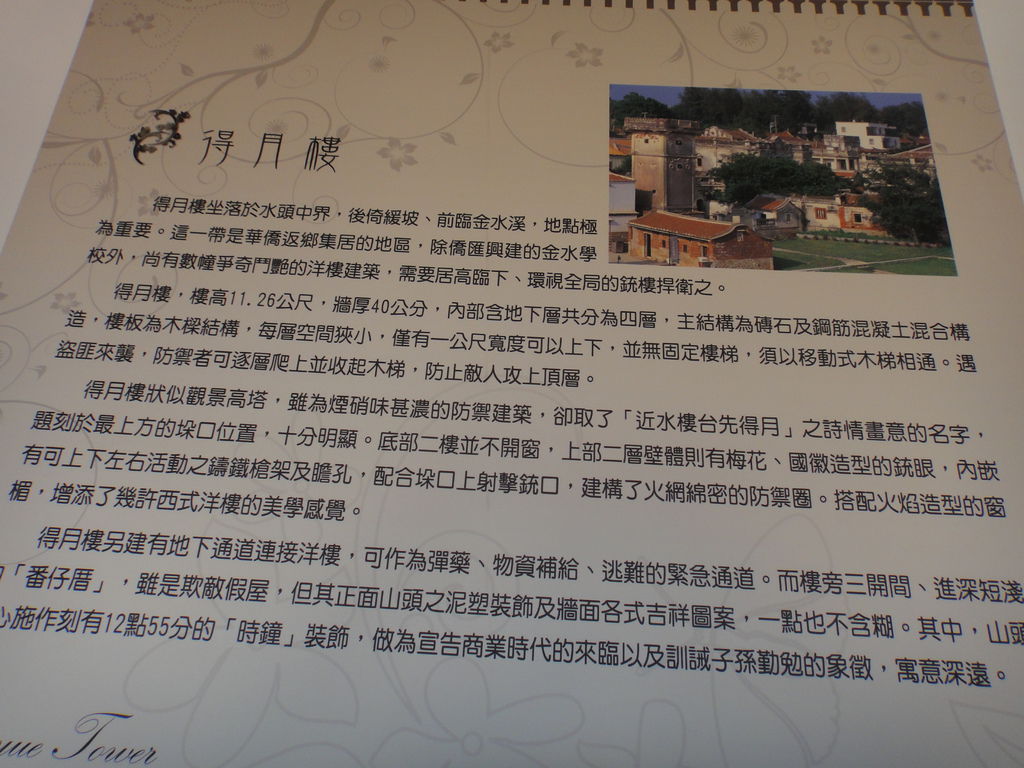 得月樓
得月樓坐落於水頭中界，後倚緩坡、前臨金水溪，地點極
為重要。這一帶是華僑返鄉集居的地區，除僑匯興建的金水學
校外，尚有數幢爭奇鬥艷的洋樓建築，需要居高臨下、環視全局的銃樓捍衛之。
得月樓，樓高11.26公尺，牆厚40公分，內部含地下層共分為四層，主結構為磚石及鋼筋混凝土混合構
造，樓板為木樑結構，每層空間狹小，僅有一公尺寬度可以上下，並無固定樓梯，須以移動式木梯相通。遇
盜匪來襲，防禦者可逐層爬上並收起木梯，防止敵人攻上頂層。
得月樓狀似觀景高塔，雖為煙硝味甚濃的防禦建築，卻取了「近水樓台先得月」之詩情畫意的名字，
題刻於最上方的垛口位置，十分明顯。底部二樓並不開窗，上部二層壁體則有梅花、國徽造型的銃眼，內嵌
有可上下左右活動之鑄鐵槍架及瞻孔，配合垛口上射擊銃口，建構了火網綿密的防禦圈。搭配火焰造型的窗
楣，增添了幾許西式洋樓的美學感覺。
得月樓另建有地下通道連接洋樓，可作為彈藥、物資補給、逃難的緊急通道。而樓旁三開間、進深短淺
「番仔厝」，雖是欺敵假屋，但其正面山頭之泥塑裝飾及牆面各式吉祥圖案，一點也不含糊。其中，山頭
心施作刻有12點55分的「時鐘」裝飾，做為宣告商業時代的來臨以及訓誡子孫勤勉的象徵，寓意深遠。
Tower